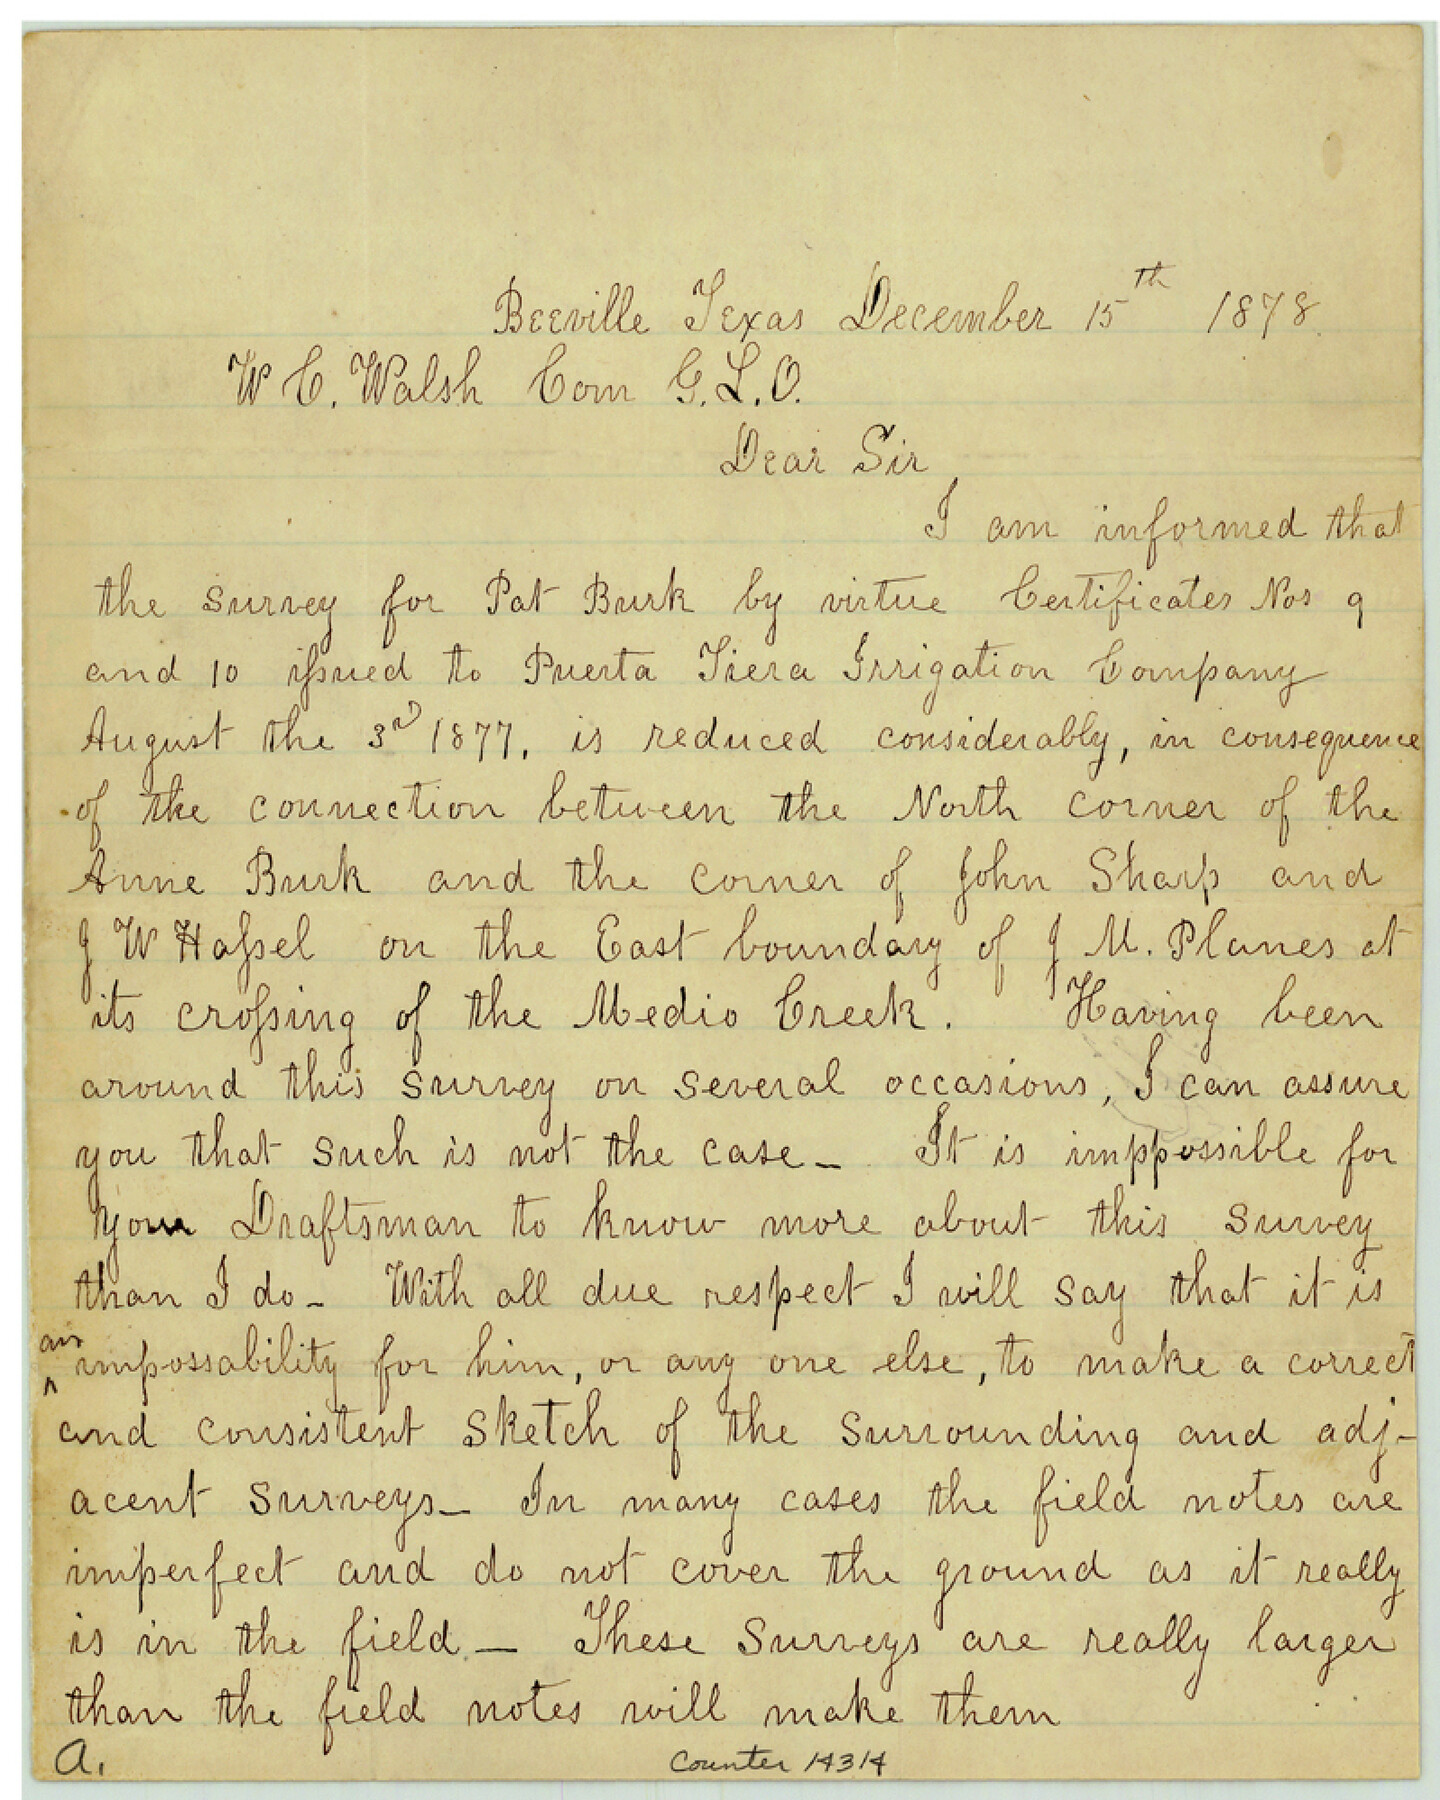 Beeville Texas December 15th 1878.
W C. Walsh Com G.L.O.
Dear Sir
I am informed that
the survey for Pat Burk by virtue Certificates Nos 9
and 10 issued to Puerta Tiera Irrigation Company
August the 3rd 1877, is reduced considerably, in consequence
of the connection between the North corner of the
Anne Burk and the corner of John Sharp and
J W Hassel on the East boundary of J M. Planes at
its crossing of the Medio Creek. Having been
around this survey on several occasions, I can assure
you that such is not the case_ It is imppossible for
your Draftsman to know more about this survey
than I do_ With all due respect I will say that it is
an
impossability for him, or any one else, to make a correct
and consistent sketch of the surrounding and adj-
acent surveys_ In many cases the field notes are
imperfect and do not cover the ground as it really
is in the field_ These surveys are really larger
than the field notes will make them
A. Counter 14314